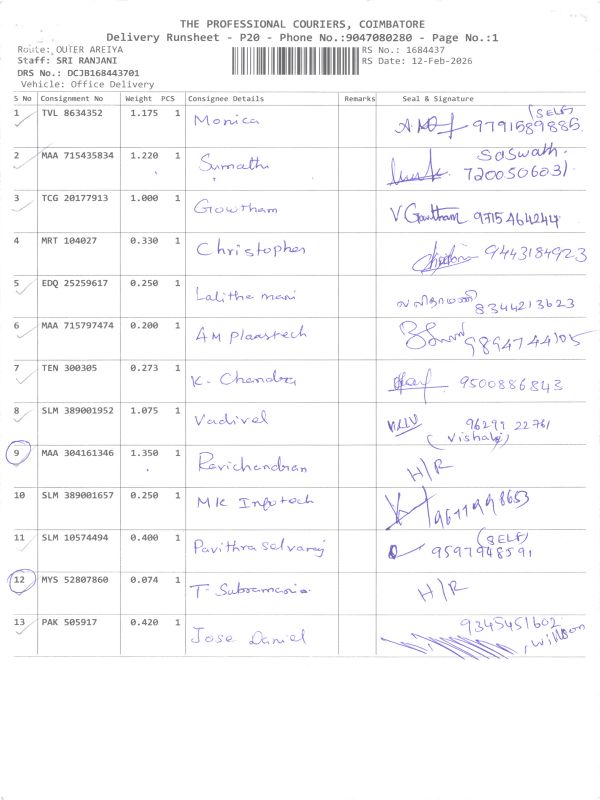 THE PROFESSIONAL COURIERS, COIMBATORE
Delivery Runsheet - P20 - Phone No.:9047080280 - Page No.:1
Route: OUTER AREIYA
RS No.: 1684437
Staff: SRI RANJANI
RS Date: 12-Feb-2026
DRS No.: DCJB168443701
Vehicle: Office Delivery
S No Consignment No Weight PCS Consignee Details Remarks Seal & Signature
1 TVL 8634352 1.175 1 Monica (SELF) 9791589885
2 MAA 715435834 1.220 1 Sumathi Saswath 7200506031
3 TCG 20177913 1.000 1 Gowtham V Gowtham 9715464244
4 MRT 104027 0.330 1 Christopher 9443184923
5 EDQ 25259617 0.250 1 Lalitha mani லலிதாமணி 8344213623
6 MAA 715797474 0.200 1 AM plaastech 9894744105
7 TEN 300305 0.273 1 K. Chandra 9500886843
8 SLM 389001952 1.075 1 Vadivel 96299 22761
(Vishal)
9 MAA 304161346 1.350 1 Ravichandran H/R
10 SLM 389001657 0.250 1 MK Infotech
11 SLM 10574494 0.400 1 Pavithra selvaraj (SELF) 9597948591
12 MYS 52807860 0.074 1 T. Subramania H/R
13 PAK 505917 0.420 1 Jose Daniel 9345451602, Willson